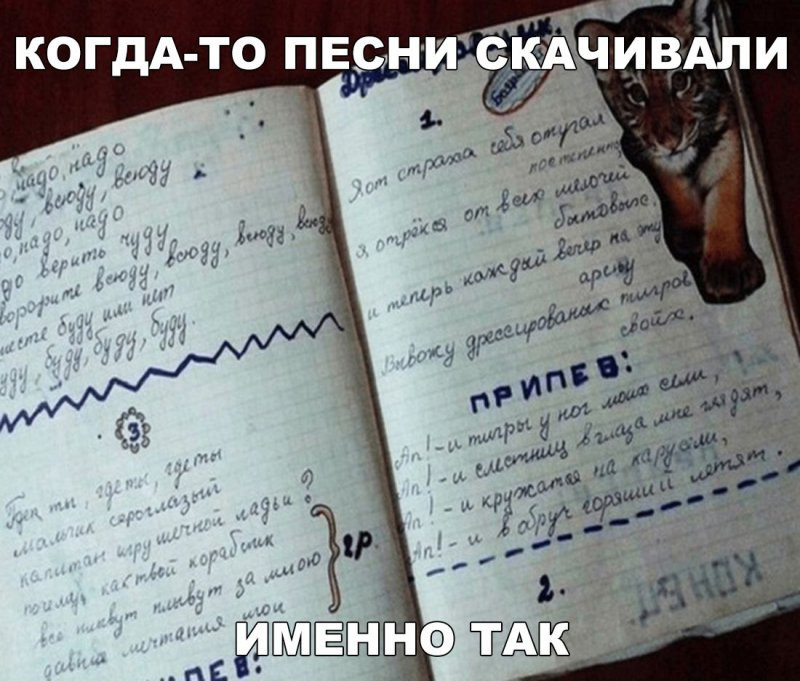 КОГДА-ТО ПЕСНИ СКАЧИВАЛИ
надо, надо
всюду, всюду
надо, надо
верить чуду
всюду, всюду, всюду,
буду или нет
буду, буду, буду.
3
Где ты, где ты, где ты
мальчик сероглазый
капитан игрушечной ладьи?
почему, как твой кораблик
все плывут плывут за мною
давние мечтания мои
гр.
1.
Я от страха себя отучал
постепенно,
Я отрёкся от всех мелочей
бытовых,
и теперь каждый вечер на эту
арену
Вывожу дрессированых тигров
своих.
ПРИПЕВ:
Ап!-и тигры у ног моих сели,
Ап!-и с лестниц в глаза мне глядят,
Ап!-и кружатся на карусели,
Ап!-и в обруч горящий летят.
2.
КОНЕЦ
ИМЕННО ТАК